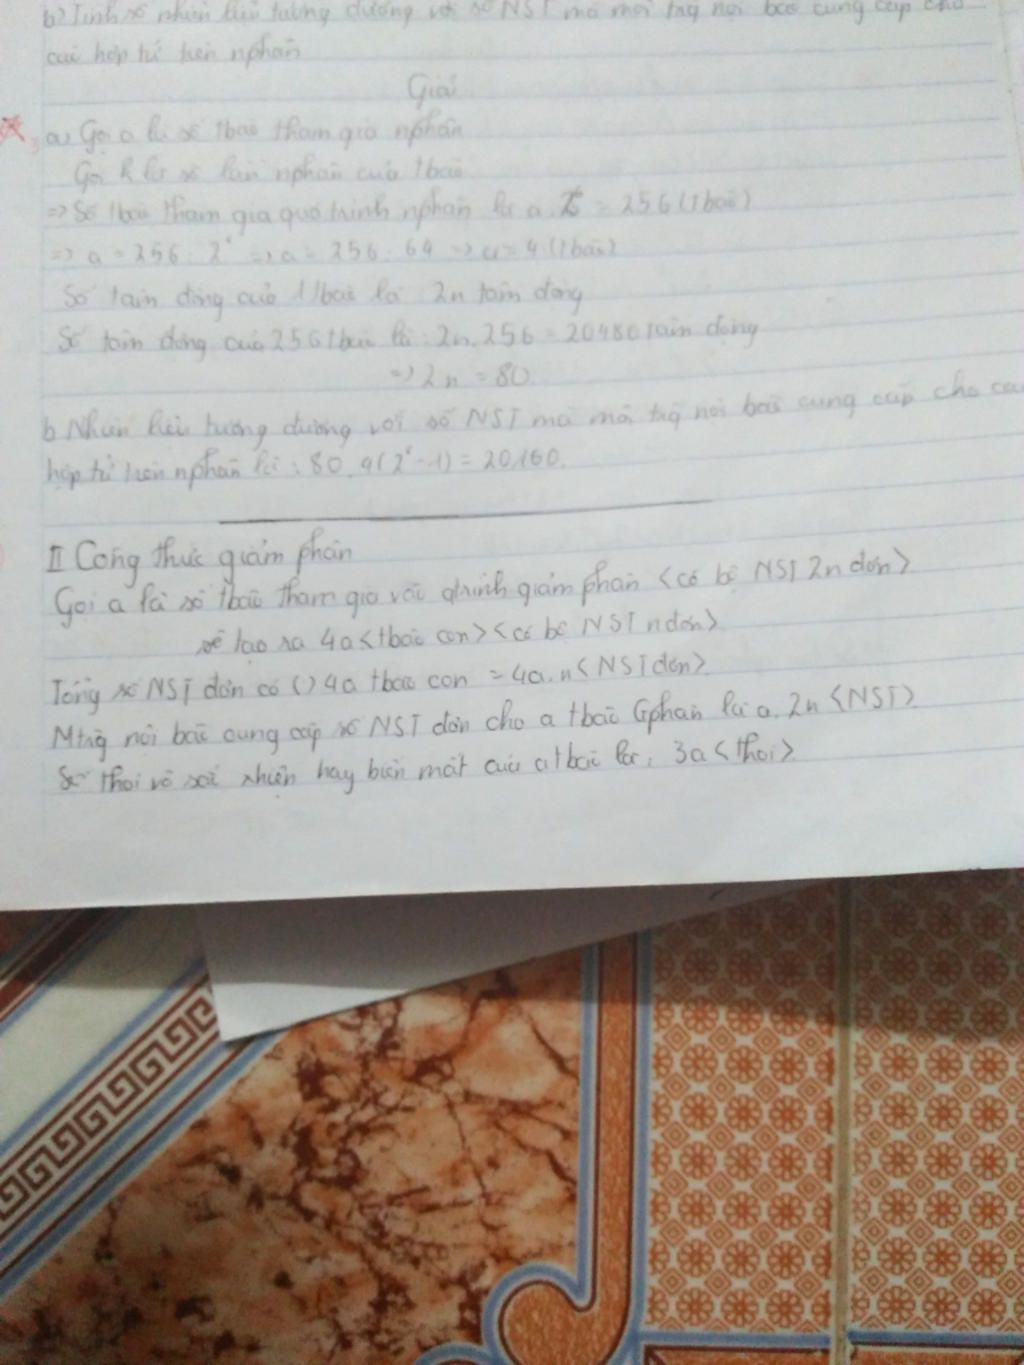 b) Tính số nhiên liệu tương đương với số NST mà môi trg nội bào cung cấp cho
các hợp tử trên nphân
Giải
a) Gọi a là số tbào tham gia nphân
Gọi k là số lần nphân của tbào
=> Số tbào tham gia quá trình nphân là a. = 256 (tbào)
=> a = 256 : 2 => a = 256 : 64 => a = 4 (tbào)
Số tâm động của 1 tbào là 2n tâm động
Số tâm động của 256 tbào là : 2n. 256 = 20480 tâm động
=> 2n = 80
b Nhiên liệu tương đương với số NST mà môi trg nội bào cung cấp cho các
hợp tử trên nphân là : 80 . 4 ( - 1) = 20160.
II Công thức giảm phân
Gọi a là số tbào tham gia vào qtrình giảm phân <có bộ NST 2n đơn>
sẽ tạo ra 4a <tbào con> <có bộ NST n đơn>
Tổng số NST đơn có () 4a tbào con = 4a.n <NST đơn>
Mtrg nội bào cung cấp số NST đơn cho a tbào Gphân là a. 2n <NST>
Số thoi vô sắc nhiện hay biến mất của a tbào là : 3a <thoi>